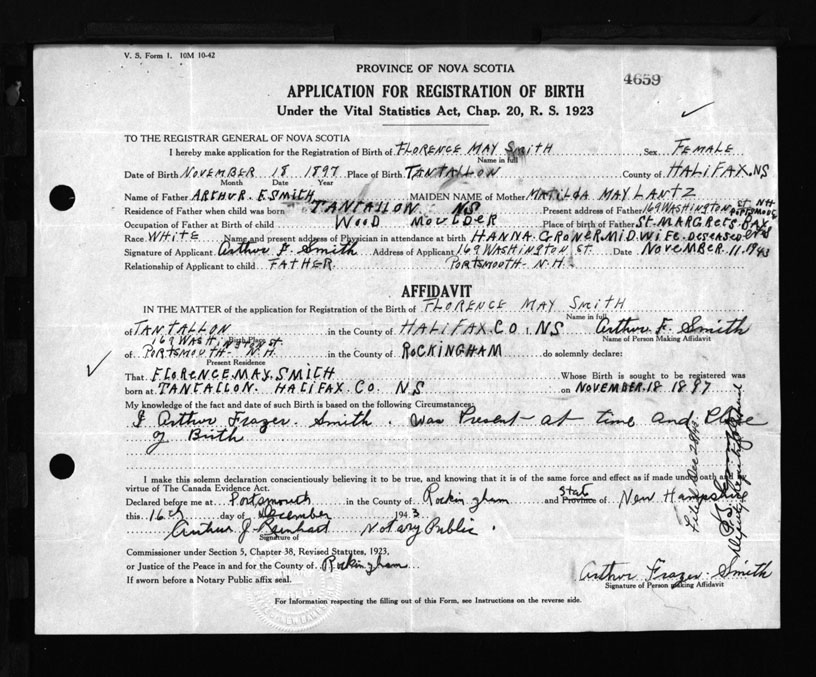 V. S. Form 1. 10M 10-42
PROVINCE OF NOVA SCOTIA
4659
APPLICATION FOR REGISTRATION OF BIRTH
Under the Vital Statistics Act, Chap. 20, R. S. 1923
TO THE REGISTRAR GENERAL OF NOVA SCOTIA
I hereby make application for the Registration of Birth of FLORENCE MAY SMITH, Sex FEMALE
Name in full
Date of Birth NOVEMBER 18 1897 Place of Birth TANTALLON County of HALIFAX. NS
Month Date Year
Name of Father ARTHUR. F. SMITH MAIDEN NAME of Mother MATILDA MAY LANTZ
Residence of Father when child was born TANTALLON NS Present address of Father 169 WASHINGTON ST. NH PORTSMOUTH
Occupation of Father at Birth of child WOOD MOULDER Place of birth of Father ST. MARGRETS. BAY
Race WHITE Name and present address of Physician in attendance at birth HANNA. GROWER. MID. WIFE. DESEASED
Signature of Applicant Arthur F. Smith Address of Applicant 169 WASHINGTON ST. Date NOVEMBER. 11. 1943
Relationship of Applicant to child FATHER PORTSMOUTH - N.H.
AFFIDAVIT
IN THE MATTER of the application for Registration of the Birth of FLORENCE MAY SMITH
Name in full
of TANTALLON in the County of HALIFAX. CO. NS Arthur F. Smith
Birth Place Name of Person Making Affidavit
169 WASHINGTON ST.
of PORTSMOUTH - N.H. in the County of ROCKINGHAM do solemnly declare:
Present Residence
That FLORENCE. MAY. SMITH Whose Birth is sought to be registered was
born at TANTALLON. HALIFAX. CO. NS on NOVEMBER. 18 1897
My knowledge of the fact and date of such Birth is based on the following Circumstances:
I Arthur Frazer. Smith. was Present at time and Place
of Birth
I make this solemn declaration conscientiously believing it to be true, and knowing that it is of the same force and effect as if made under oath and
virtue of The Canada Evidence Act.
Declared before me at Portsmouth in the County of Rockingham and State Province of New Hampshire
this 16th day of December 1943
Arthur J. Reinhart Notary Public.
Signature of
Commissioner under Section 5, Chapter 38, Revised Statutes, 1923.
or Justice of the Peace in and for the County of Rockingham
If sworn before a Notary Public affix seal.
Arthur Frazer. Smith
Signature of Person making Affidavit
For Information respecting the filling out of this Form, see Instructions on the reverse side.
Filed Dec 28/43
Deputy Registrar General